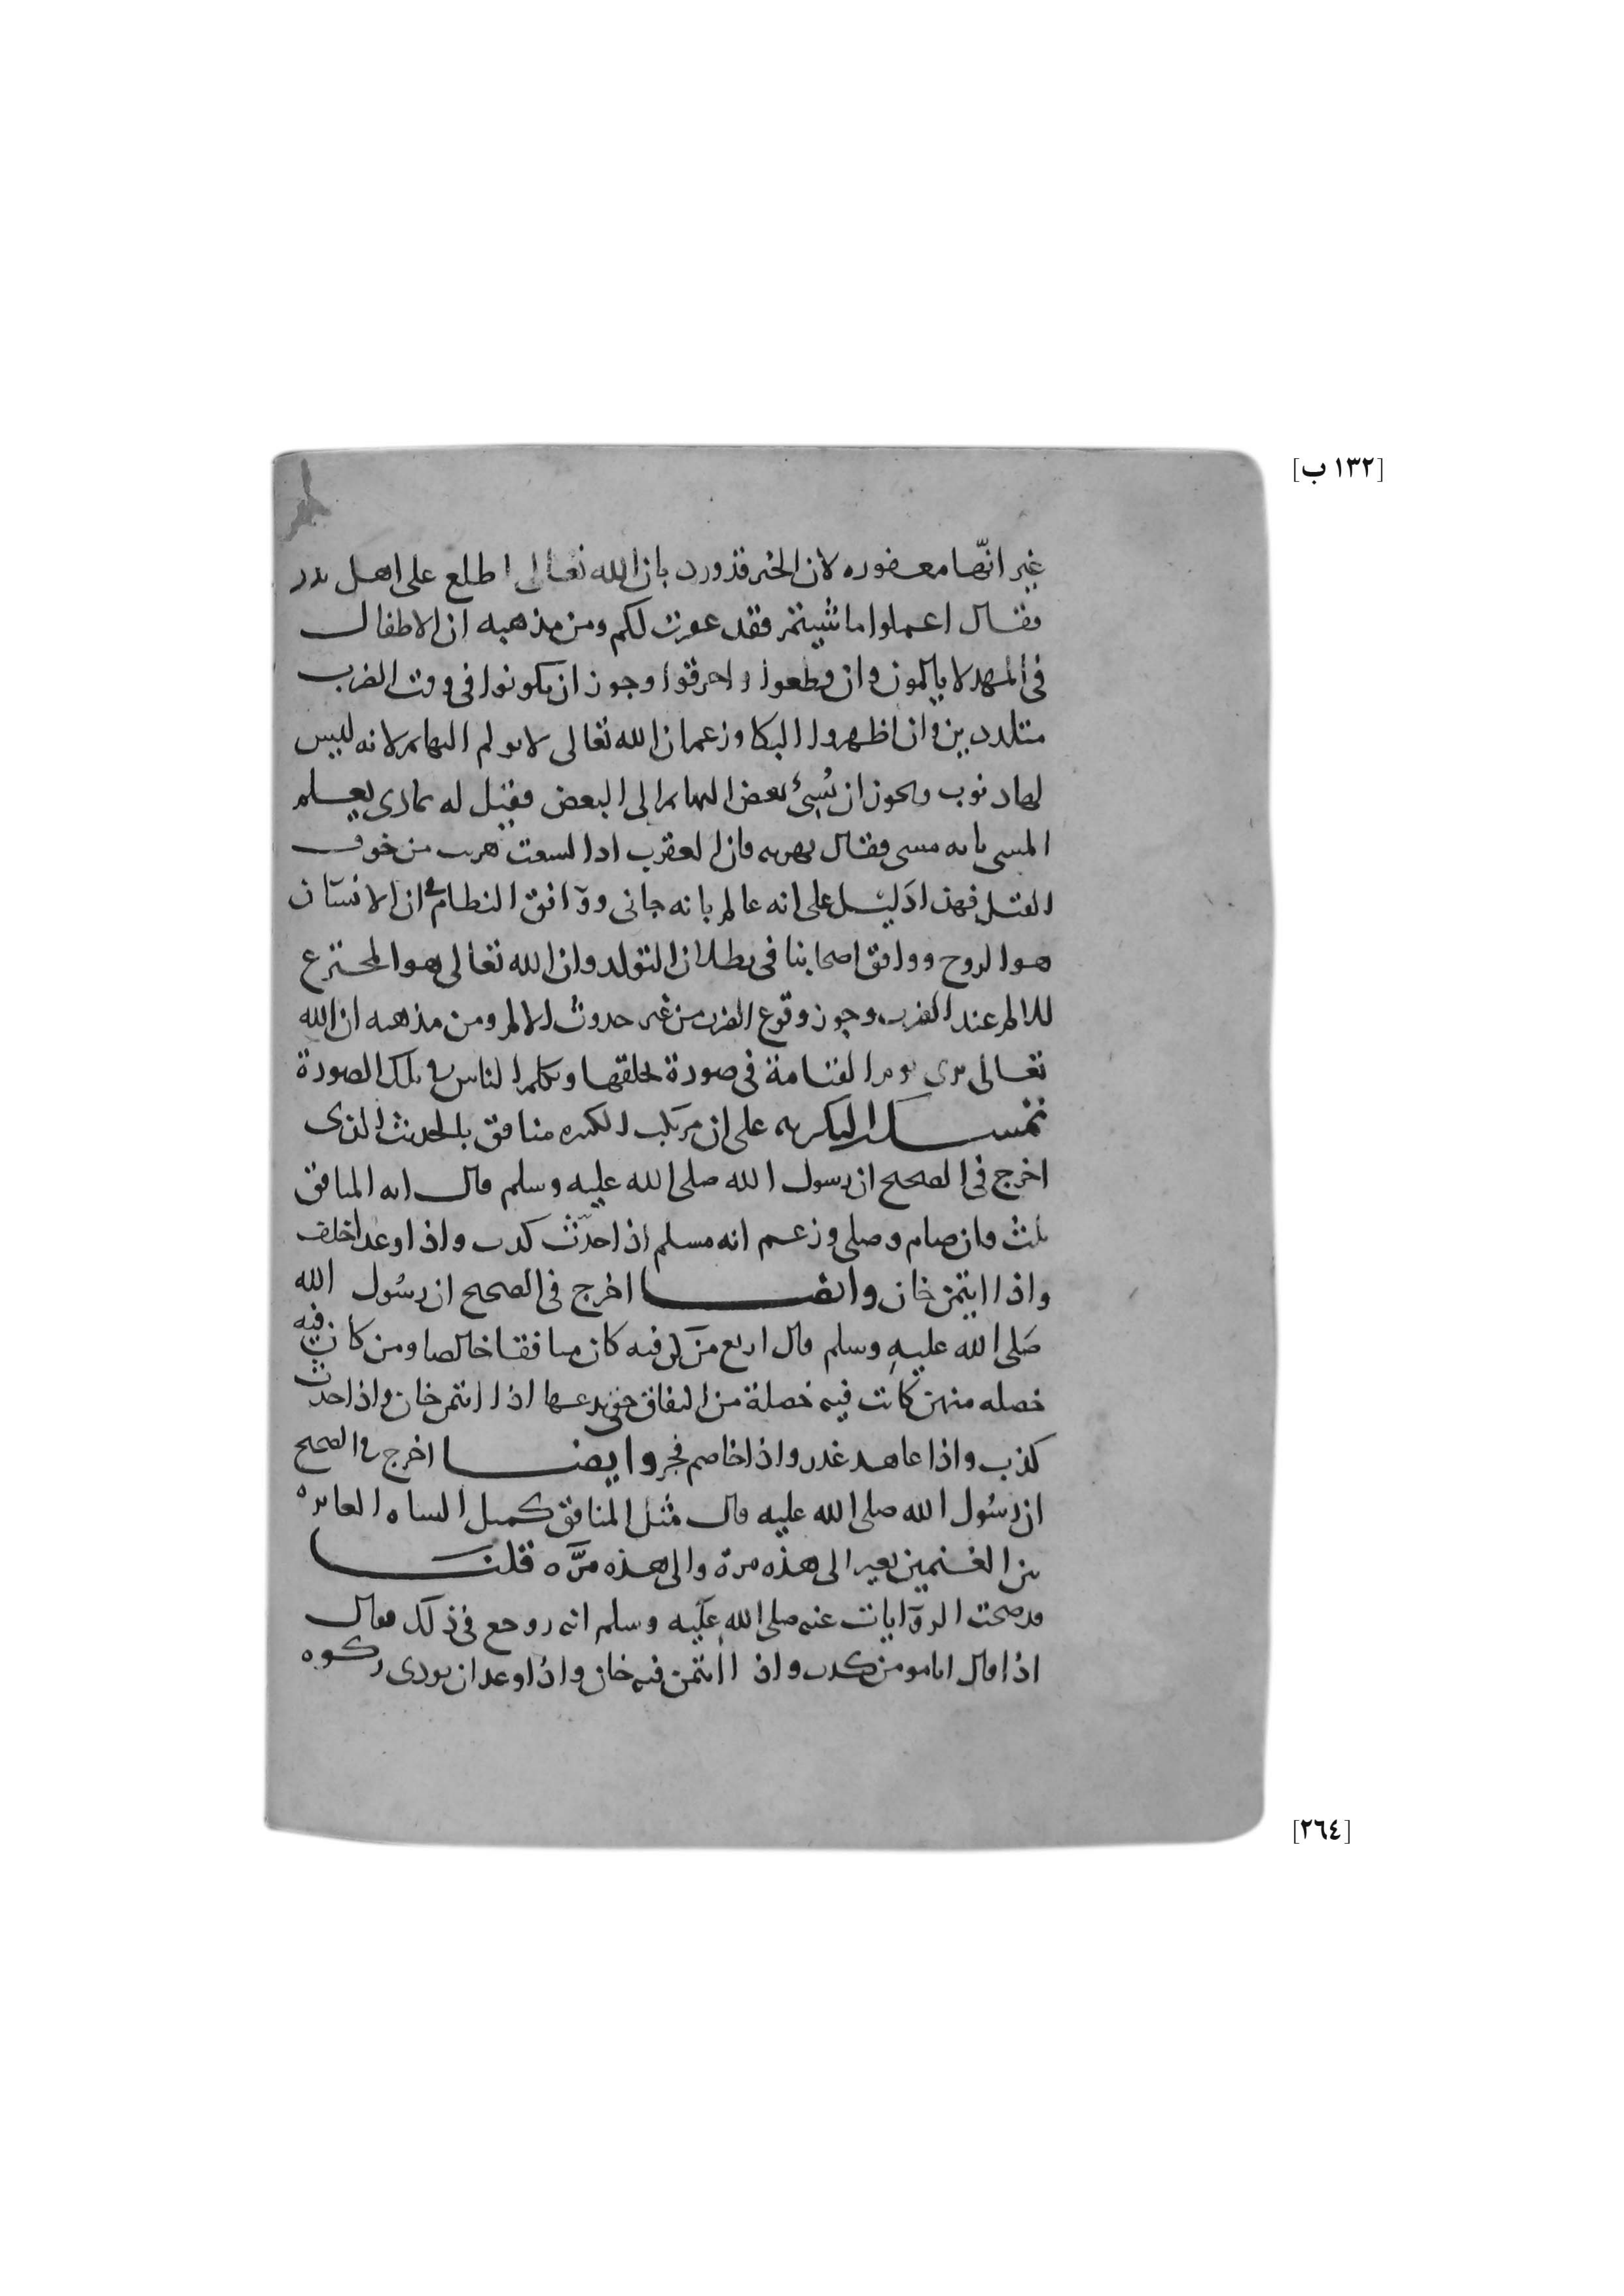 [١٣٢ ب]
غير انها معفوره لان الخبر قد ورد بان الله تعالى اطلع على اهل بدر
فقال اعملوا ما شيتم فقد غفرت لكم ومن مذهبه ان الاطفال
في المهد لا يالمون وان قطعوا واحرقوا وجوز ان يكونوا في وقت الضرب
متلددين وان اظهروا البكا وزعم ان الله تعالى لا يولم البهايم لانه ليس
لها ذنوب ويجوز ان يُسيئ بعض البهايم الى البعض فقيل له بماذى يعلم
المسى بانه مسى فقال بهربه فان العقرب اذا لسعت هربت من خوف
القتل فهذا دَليل على انه عالم بانه جانى ووافق النظام في ان الانسان
هوا لروح ووافق اصحابنا في بطلان التولد وان الله تعالى هوا لمخترع
للالم عند الضرب وجوز وقوع الضرب من غير حدوث الالم ومن مذهبه ان الله
تعالى يرى يوم القيامة في صورة يخلقها ويكلم الناس في تلك الصورة
تمسك البكريه على ان مرتكب الكبيره منافق بالحديث الذى
اخرج في الصحيح ان رسول الله صلى الله عليه وسلم قال ايه المنافق
ثلث وان صام وصلى وزعم انه مسلم اذا حدّث كذب واذا وعد اخلف
واذا ايتمن خان وايضا اخرج في الصحيح ان رسُول الله
صَلى الله عليهِ وسلم قال اربع من كن فيه كان منافقا خالصا ومن كان فيه
خصله منهن كانت فيه خصلة من النفاق حتى يدعها اذا ايتمن خان واذا حدث
كذب واذا عاهد غدر واذا خاصم فجر وايضا اخرج في الصحيح
ان رسُول الله صلى الله عليه قال مثل المنافق كمثل الشاه العايره
بين الغنمين يعير الى هذه مرة والى هذه مرّه قلنا
قد صحت الروايات عنه صلى الله عليه وسلم انه روجع في ذلك فقال
اذا قال انا مومن كذب واذا ائتمن فيه خان واذا وعد ان يودى زكوه
[٢٦٤]